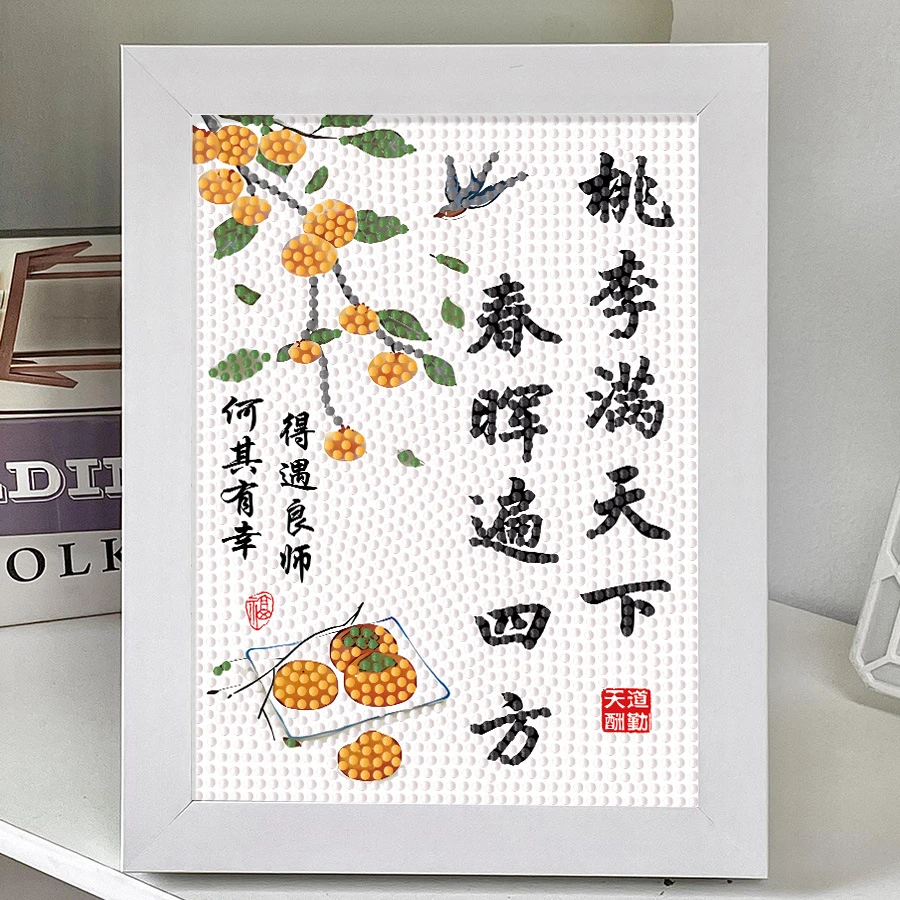 桃李满天下
春晖遍四方
得遇良师
何其有幸
福
天道酬勤
LDIN
OLK